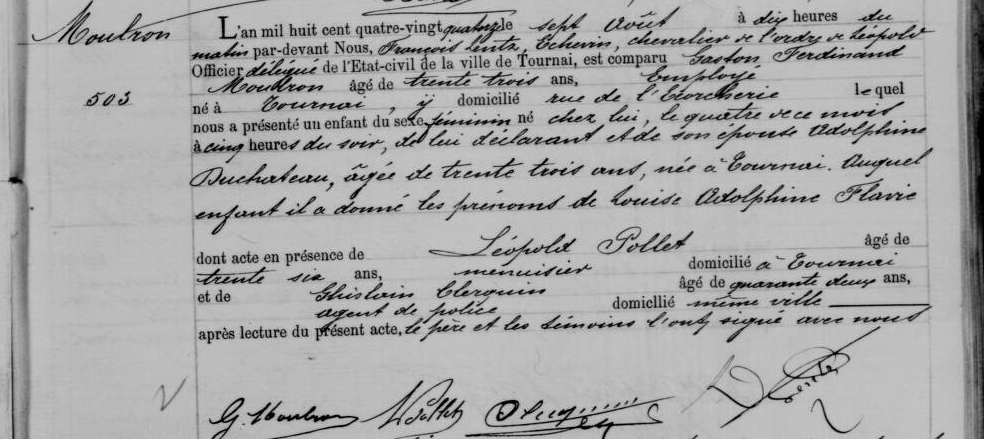 Moulron
503
L'an mil huit cent quatre-vingt quatorze le sept Août à dix heures du
matin par-devant Nous, François Lentz, Echevin, chevalier de l'ordre de Léopold
Officier délégué de l'Etat-civil de la ville de Tournai, est comparu Gaston Ferdinand
Moulron âgé de trente trois ans, Employé
né à Tournai, y domicilié rue de l'Ecorcherie lequel
nous a présenté un enfant du sexe féminin né chez lui, le quatre de ce mois
à cinq heures du soir, de lui déclarant et de son épouse Adolphine
Duchateau, âgée de trente trois ans, née à Tournai. Auquel
enfant il a donné les prénoms de Louise Adolphine Flavie
dont acte en présence de Léopold Pollet âgé de
trente six ans, menuisier domicilié à Tournai
et de Ghislain Clerquin âgé de quarante deux ans,
agent de police domicilié même ville
après lecture du présent acte, le père et les témoins l'ont signé avec nous
G. Moulron Pollet